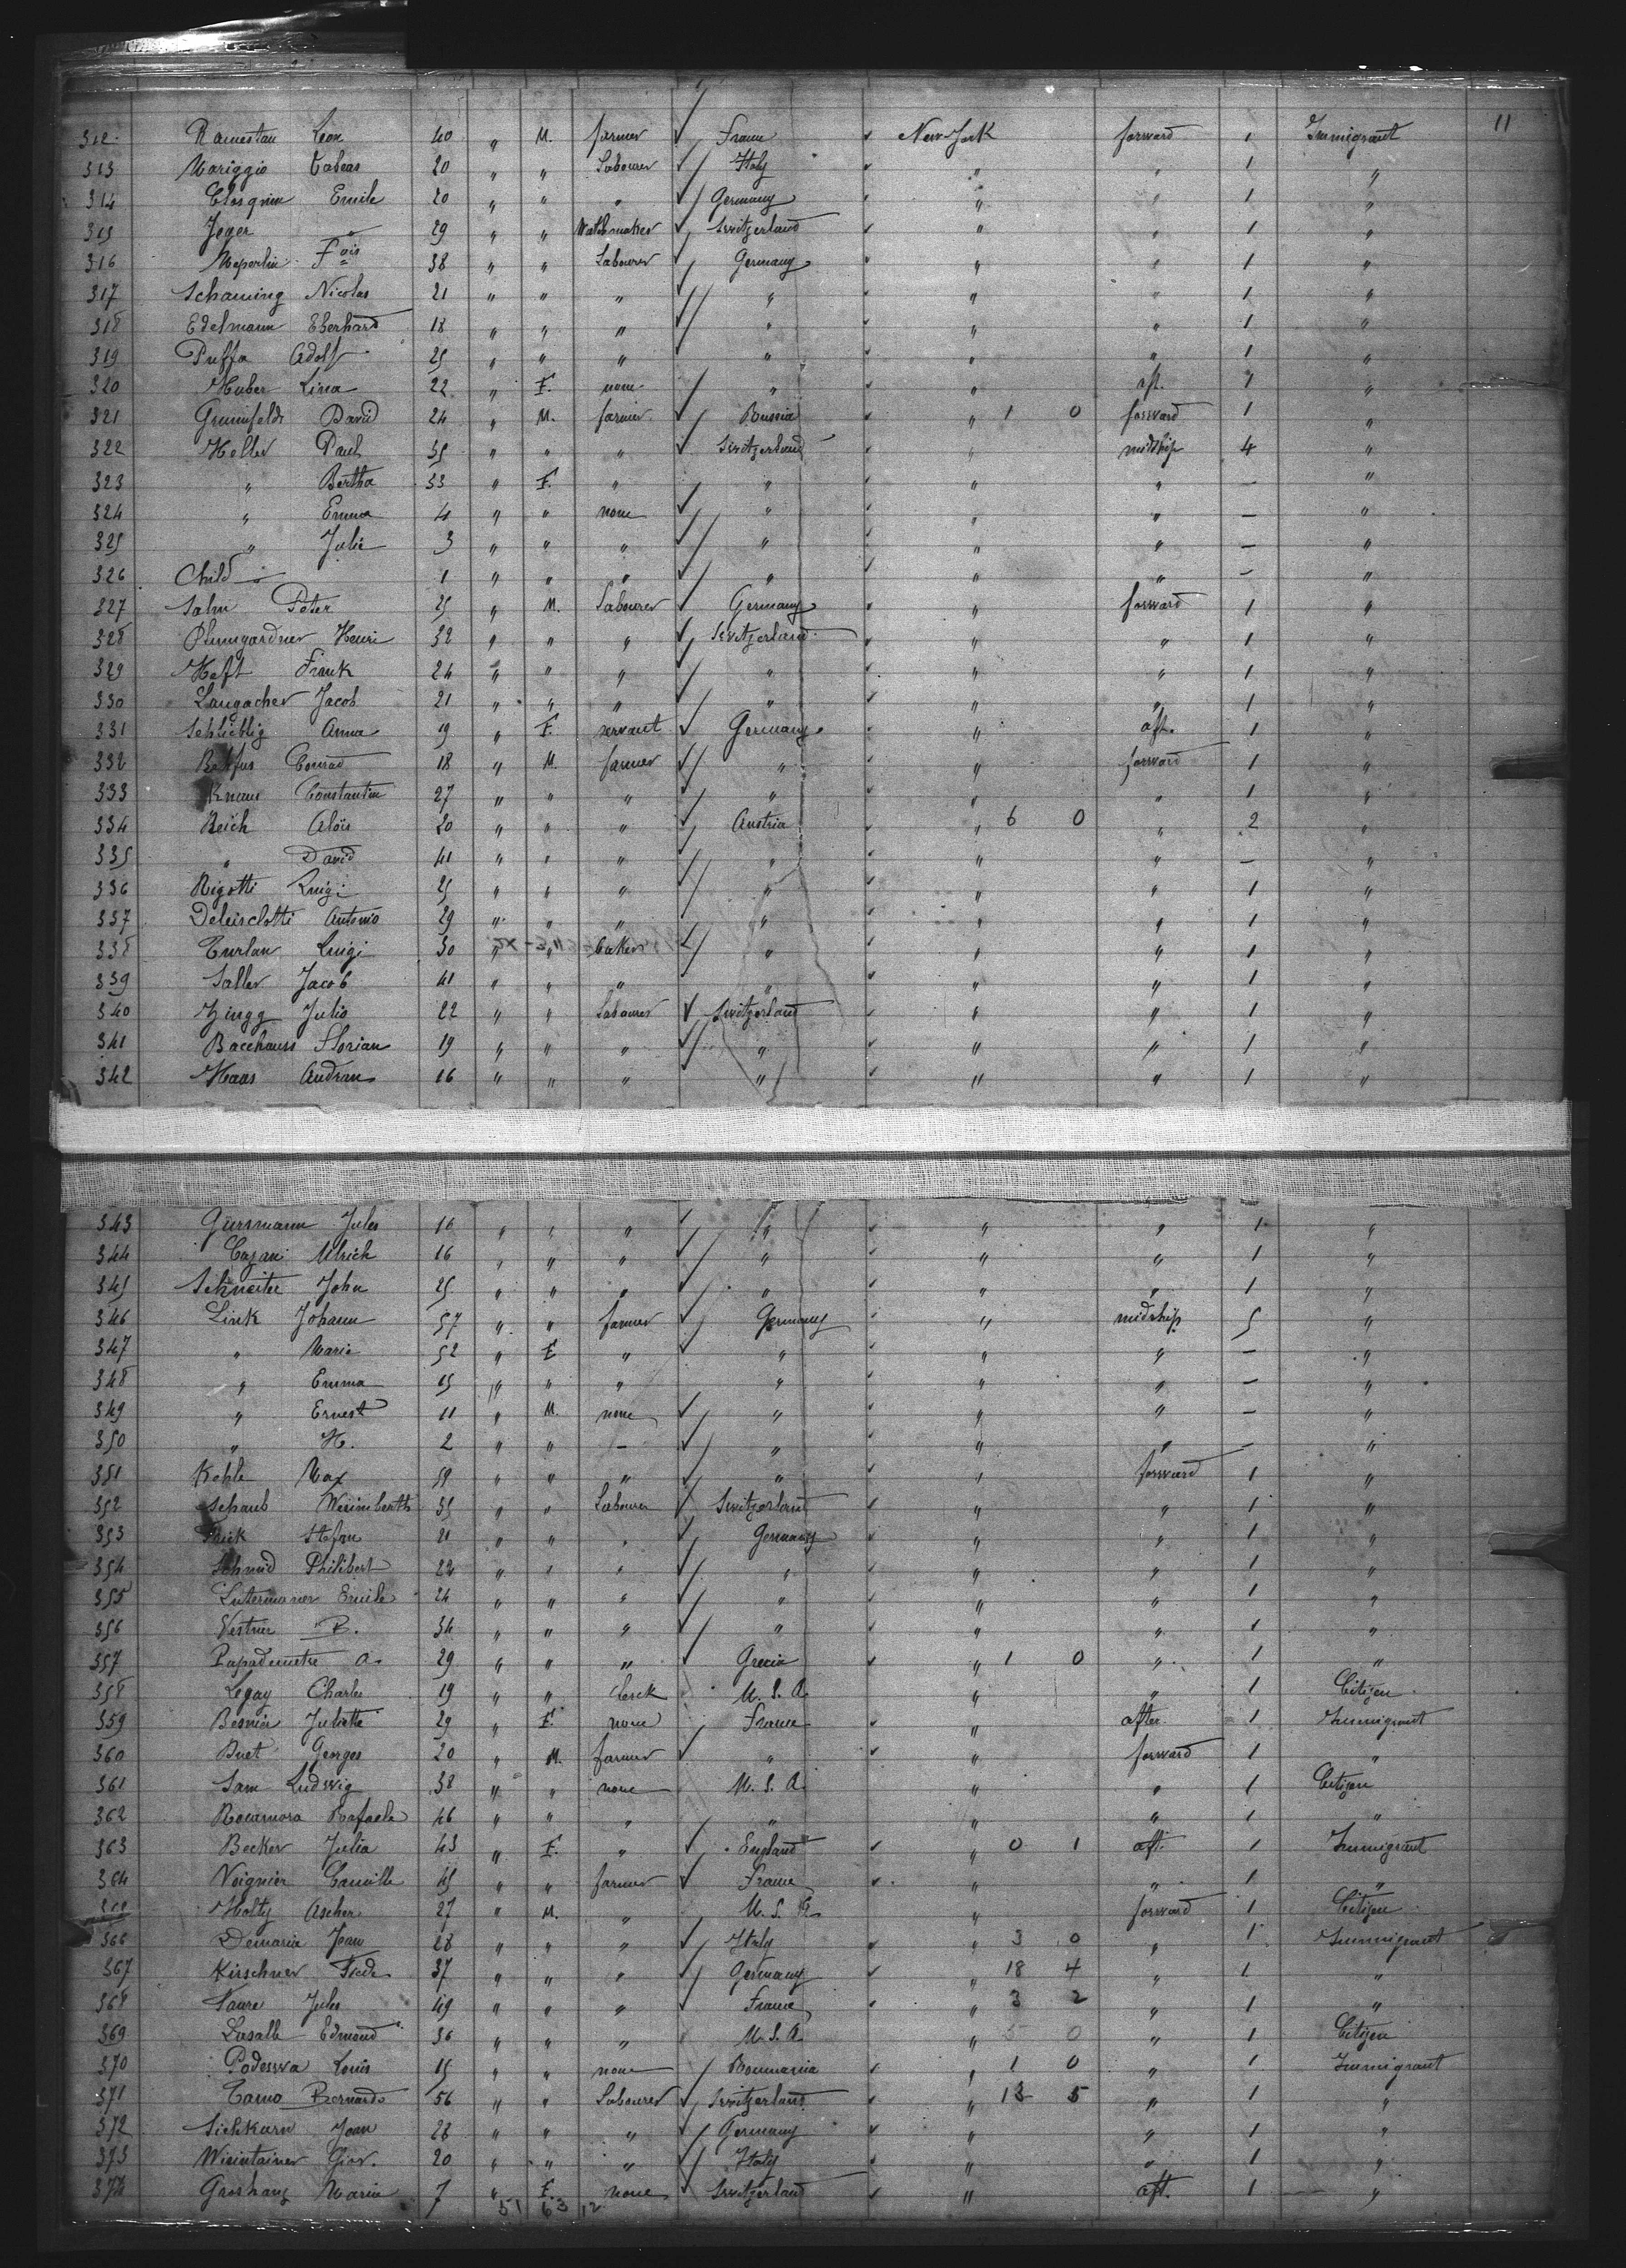 11
312 Ramestan Leon 40 " M. farmer ✓ France ✓ New York forward 1 Immigrant
313 Mariggio 20 " " Labourer ✓ Italy ✓ " " 1 "
314 Closquin Emile 20 " " " ✓ Germany ✓ " " 1 "
315 Jeger " 29 " " Watchmaker ✓ Switzerland ✓ " " 1 "
316 Meperlin Fçois 38 " " Labourer ✓ Germany ✓ " " 1 "
317 Schaming Nicolas 21 " " " ✓ " ✓ " " 1 "
318 Edelmann Eberhard 18 " " " ✓ " ✓ " " 1 "
319 Puffa Adolf 25 " " " " ✓ " " 1 "
320 Huber Lina 22 " F. none " ✓ " aft. 1 "
321 Grunfeld David 24 " M. farmer ✓ Russia ✓ " 1 0 forward 1 "
322 Heller Paul 35 " " " ✓ Switzerland ✓ " midship 4 "
323 " Bertha 33 " F. " " ✓ " " - "
324 " Emma 4 " " none ✓ " ✓ " " - "
325 " Julie 3 " " " ✓ " ✓ " " - "
326 Child 1 " " " ✓ " ✓ " " - "
327 Salm Peter 25 " M. Labourer ✓ Germany ✓ " forward 1 "
328 Plumgardner Henri 32 " " " ✓ Switzerland ✓ " " 1 "
329 Heft Frank 24 " " " ✓ " ✓ " " 1 "
330 Langacher Jacob 21 " " " ✓ " ✓ " " 1 "
331 Schlieblig Anna 19 " F. servant ✓ Germany ✓ " aft. 1 "
332 Conrad 18 " M. farmer ✓ " ✓ " forward 1 "
333 Knaus Constantin 27 " " " ✓ " ✓ " " 1 "
334 Reich Aloïs 20 " " " ✓ Austria ✓ " 6 0 " 2 "
335 " David 41 " " " ✓ " ✓ " " - "
336 Rigotti Luigi 25 " " " ✓ " ✓ " " 1 "
337 Deleisclotti Antonio 29 " " " ✓ " ✓ " " 1 "
338 Turlan Luigi 30 " " baker ✓ " ✓ " " 1 "
339 Saller Jacob 41 " " " " ✓ " " 1 "
340 Zingg Julio 22 " " Labourer ✓ Switzerland ✓ " " 1 "
341 Bacchauss Florian 19 " " " ✓ " ✓ " " 1 "
342 Haas Andran 16 " " " " ✓ " " 1 "
343 Gürsmann Jules 16 " " " ✓ " ✓ " " 1 "
344 Cazani Ulrich 16 " " " ✓ " ✓ " " 1 "
345 Schneiter John 25 " " " ✓ " ✓ " " 1 "
346 Link Johann 57 " " farmer ✓ Germany ✓ " midship 5 "
347 " Marie 52 " F " ✓ " ✓ " " - "
348 " Emma 15 " " " " ✓ " " - "
349 " Ernest 11 " M. none ✓ " ✓ " " - "
350 " H. 2 " " - ✓ " ✓ " " - "
351 Kohle Max 59 " " " ✓ " ✓ " forward 1 "
352 Schaub 35 " " Labourer ✓ Switzerland ✓ " " 1 "
353 Frick Stefan 21 " " " ✓ Germany ✓ " " 1 "
354 Schmid Philibert 22 " " " ✓ " ✓ " " 1 "
355 Lutermaner Emile 24 " " " ✓ " ✓ " " 1 "
356 Vestner B. 34 " " " ✓ " ✓ " " 1 "
357 Papademetre A. 29 " " " ✓ Grecia ✓ " 1 0 " 1 "
358 Legay Charles 19 " " clerck U. S. A. " " 1 Citizen
359 Besnier Juliette 29 " F. none France ✓ " after. 1 Immigrant
360 Buet Georges 20 " M. farmer ✓ " ✓ " forward 1 "
361 Sam Ludwig 38 " " none U. S. A. " " 1 Citizen
362 Rocamora Rafaele 46 " " " " " " 1 "
363 Becker Julia 43 " F. " ✓ England ✓ " 0 1 aft. 1 Immigrant
364 Voignier Camille 45 " " farmer ✓ France ✓ " " 1 "
365 Holtz Ascher 27 " M. " U. S. A. " forward 1 Citizen
366 Demaria Jean 28 " " " ✓ Italy ✓ " 3 0 " 1 Immigrant
367 Kirschner Frede 37 " " " ✓ Germany ✓ " 18 4 " 1 "
368 Faure Jules 49 " " " ✓ France ✓ " 3 2 " 1 "
369 Lasalle Edmond 36 " " " U. S. A. " 5 0 " 1 Citizen
370 Podessva Louis 15 " " none Roumania ✓ " 1 0 " 1 Immigrant
371 Tamo Bernardo 56 " " Labourer ✓ Switzerland ✓ " 13 5 " 1 "
372 Sichkarn Jean 28 " " " ✓ Germany ✓ " " 1 "
373 Wisintainer Giov. 20 " " " ✓ Italy ✓ " " 1 "
374 Groshanz Marie 7 " F. none ✓ Switzerland ✓ " aft. 1 "
51 63 12